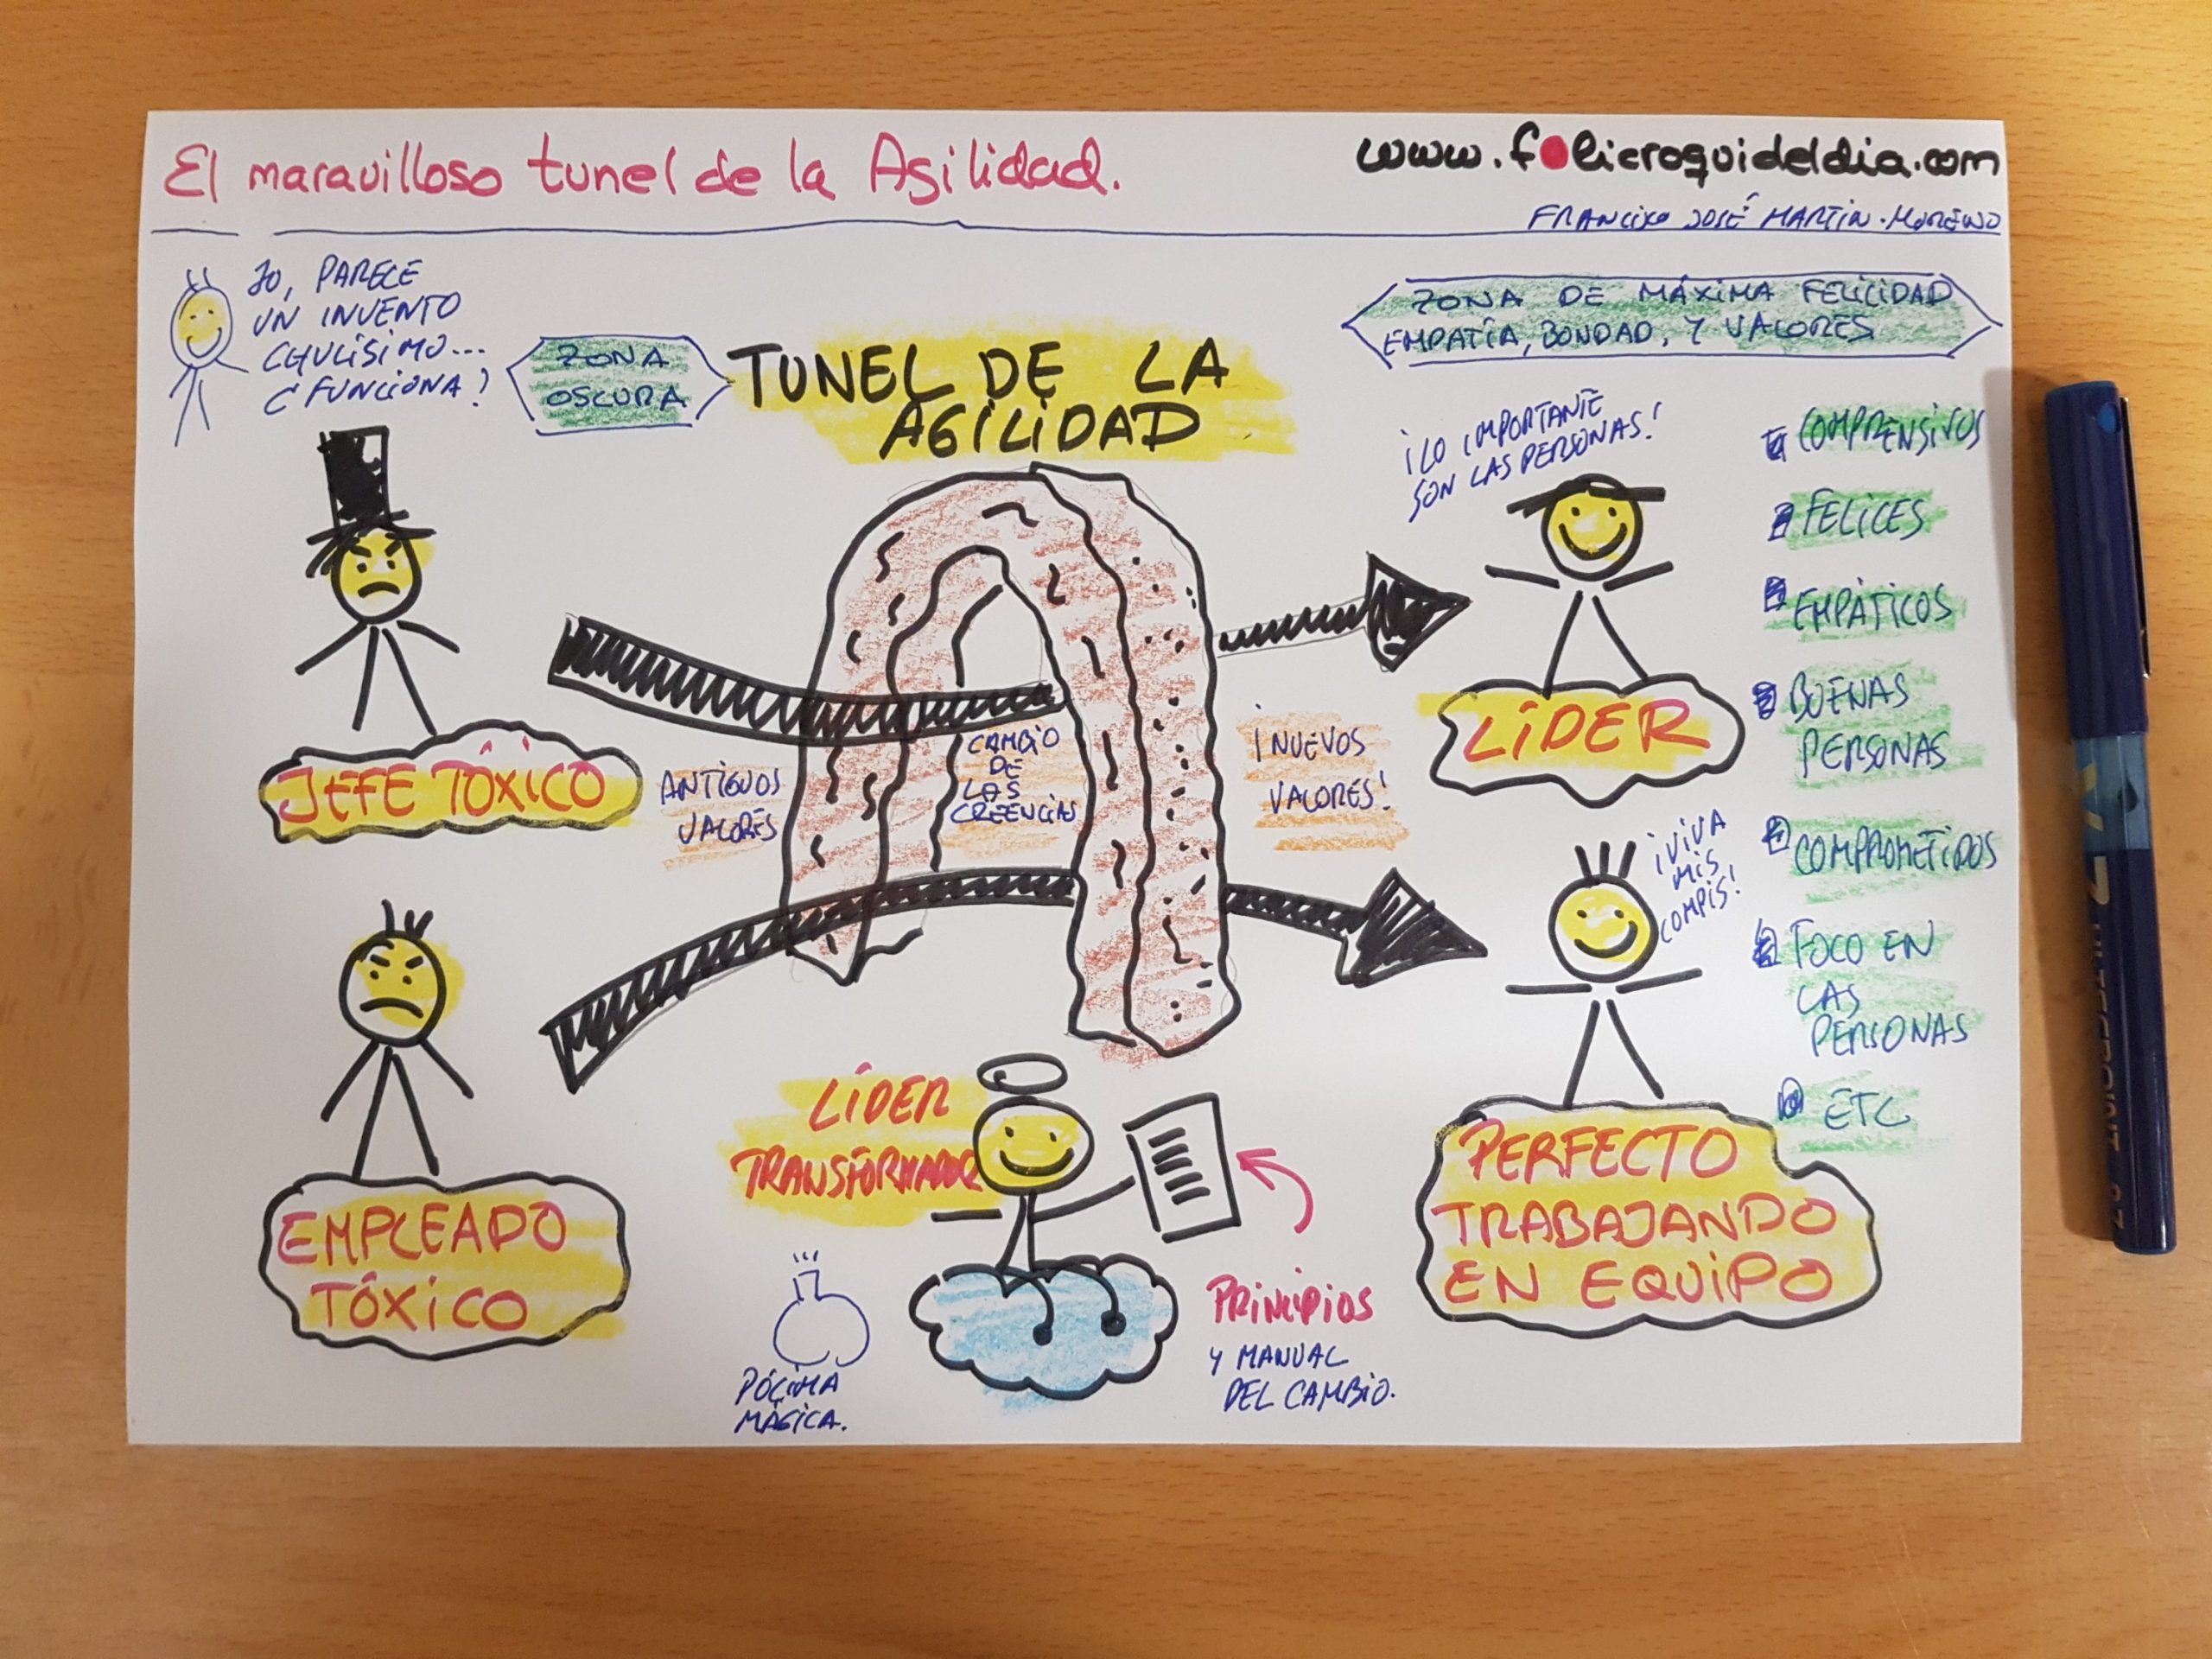 El maravilloso tunel de la Agilidad.
www.folicroquideldia.com
FRANCISCO JOSÉ MARTIN-MORENO
JO, PARECE
UN INVENTO
CHULÍSIMO...
¿FUNCIONA?
ZONA
OSCURA
TUNEL DE LA
AGILIDAD
ZONA DE MÁXIMA FELICIDAD
EMPATÍA, BONDAD, Y VALORES
¡LO IMPORTANTE
SON LAS PERSONAS!
COMPRENSIVOS
FELICES
EMPÁTICOS
BUENAS
PERSONAS
COMPROMETIDOS
FOCO EN
LAS
PERSONAS
ETC
JEFE TÓXICO
ANTIGUOS
VALORES
CAMBIO
DE
LAS
CREENCIAS
¡NUEVOS
VALORES!
LÍDER
¡VIVA
MIS
COMPIS!
EMPLEADO
TÓXICO
LÍDER
TRANSFORMADOR
PÓCIMA
MÁGICA.
PRINCIPIOS
Y MANUAL
DEL CAMBIO.
PERFECTO
TRABAJANDO
EN EQUIPO